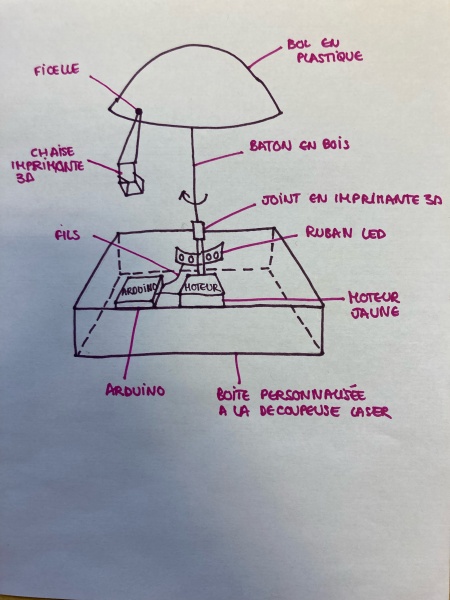 BOL EN
PLASTIQUE
FICELLE
BATON EN BOIS
CHAISE
IMPRIMANTE
3D
JOINT EN IMPRIMANTE 3D
FILS
RUBAN LED
ARDUINO
MOTEUR
MOTEUR
JAUNE
ARDUINO
BOITE PERSONNALISÉE
A LA DECOUPEUSE LASER